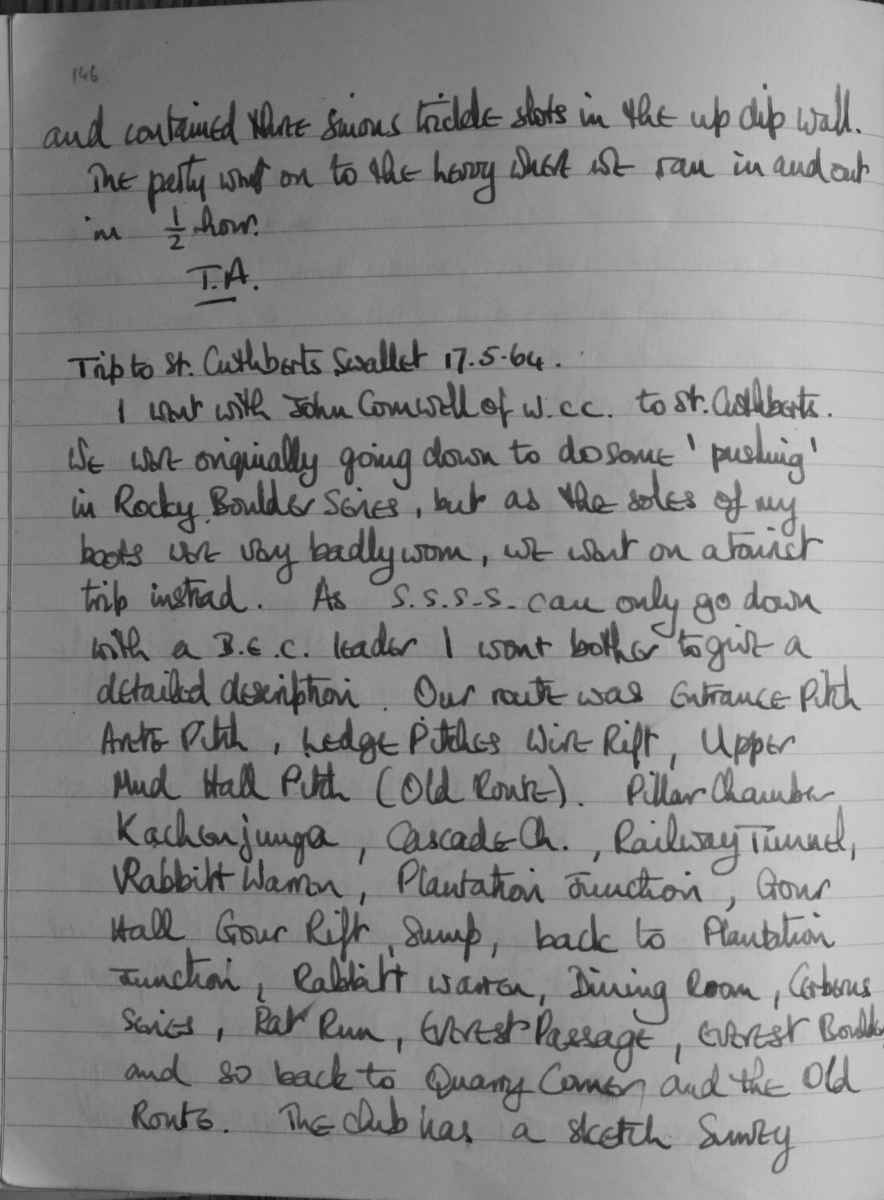 146
and contained three sinous trickle slots in the up dip wall.
The party went on to the heavy where we ran in and out
in 1/2 hour.
T.A.
Trip to St. Cuthberts Swallet 17.5.64.
I went with John Cornwell of W.C.C. to St. Cuthberts.
We were originally going down to do some 'pushing'
in Rocky Boulder Series, but as the soles of my
boots were very badly worn, we went on a tourist
trip instead. As S.S.S.S. can only go down
with a B.E.C. leader I wont bother to give a
detailed description. Our route was Entrance Pitch
Arete Pitch, Ledge Pitches Wire Rift, Upper
Mud Hall Pitch (Old Route). Pillar Chamber
Kachenjunga, Cascade Ch., Railway Tunnel,
Rabbitt Warren, Plantation Junction, Gour
Hall Gour Rift, Sump, back to Plantation
Junction, Rabbitt warren, Dining Room, Cerberus
Series, Rat Run, Everest Passage, Everest Boulder
and so back to Quarry Corner, and the Old
Route. The club has a sketch Survey